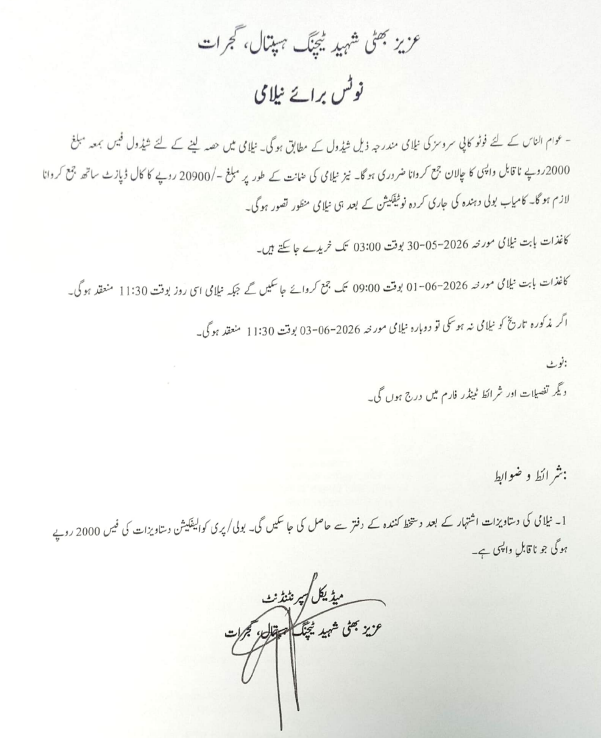 عزیز بھٹی شہید ٹیچنگ ہسپتال، گجرات
نوٹس برائے نیلامی
- عوام الناس کے لئے فوٹو کاپی سروسز کی نیلامی مندرجہ ذیل شیڈول کے مطابق ہوگی۔ نیلامی میں حصہ لینے کے لئے شیڈول فیس بمعہ مبلغ
2000روپے ناقابل واپسی کا چالان جمع کروانا ضروری ہوگا۔ نیز نیلامی کی ضمانت کے طور پر مبلغ -/20900 روپے کا کال ڈپازٹ ساتھ جمع کروانا
لازم ہوگا۔ کامیاب بولی دہندہ کی جاری کردہ نوٹیفکیشن کے بعد ہی نیلامی منظور تصور ہوگی۔
کاغذات بابت نیلامی مورخہ 30-05-2026 بوقت 03:00 تک خریدے جاسکتے ہیں۔
کاغذات بابت نیلامی مورخہ 01-06-2026 بوقت 09:00 تک جمع کروائے جاسکیں گے جبکہ نیلامی اسی روز بوقت 11:30 منعقد ہوگی۔
اگر مذکورہ تاریخ کو نیلامی نہ ہوسکی تو دوبارہ نیلامی مورخہ 03-06-2026 بوقت 11:30 منعقد ہوگی۔
:نوٹ
دیگر تفصیلات اور شرائط ٹینڈر فارم میں درج ہوں گی۔
:شرائط و ضوابط
1۔ نیلامی کی دستاویزات اشتہار کے بعد دستخط کنندہ کے دفتر سے حاصل کی جاسکیں گی۔ بولی/پری کوالیفکیشن دستاویزات کی فیس 2000 روپے
ہوگی جو ناقابلِ واپسی ہے۔
میڈیکل سپرنٹنڈنٹ
عزیز بھٹی شہید ٹیچنگ ہسپتال، گجرات